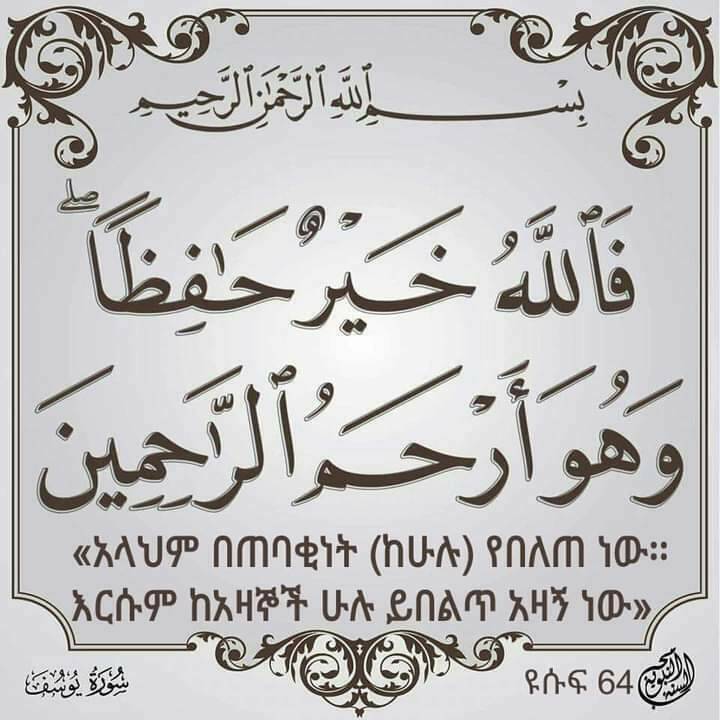 بِسْمِ ٱللَّهِ ٱلرَّحْمَٰنِ ٱلرَّحِيمِ
فَٱللَّهُ خَيْرٌ حَٰفِظًا ۖ
وَهُوَ أَرْحَمُ ٱلرَّٰحِمِينَ
«አላህም በጠባቂነት (ከሁሉ) የበለጠ ነው።
እርሱም ከአዛኞች ሁሉ ይበልጥ አዛኝ ነው»
سُورَةُ يُوسُفَ
ዩሱፍ 64